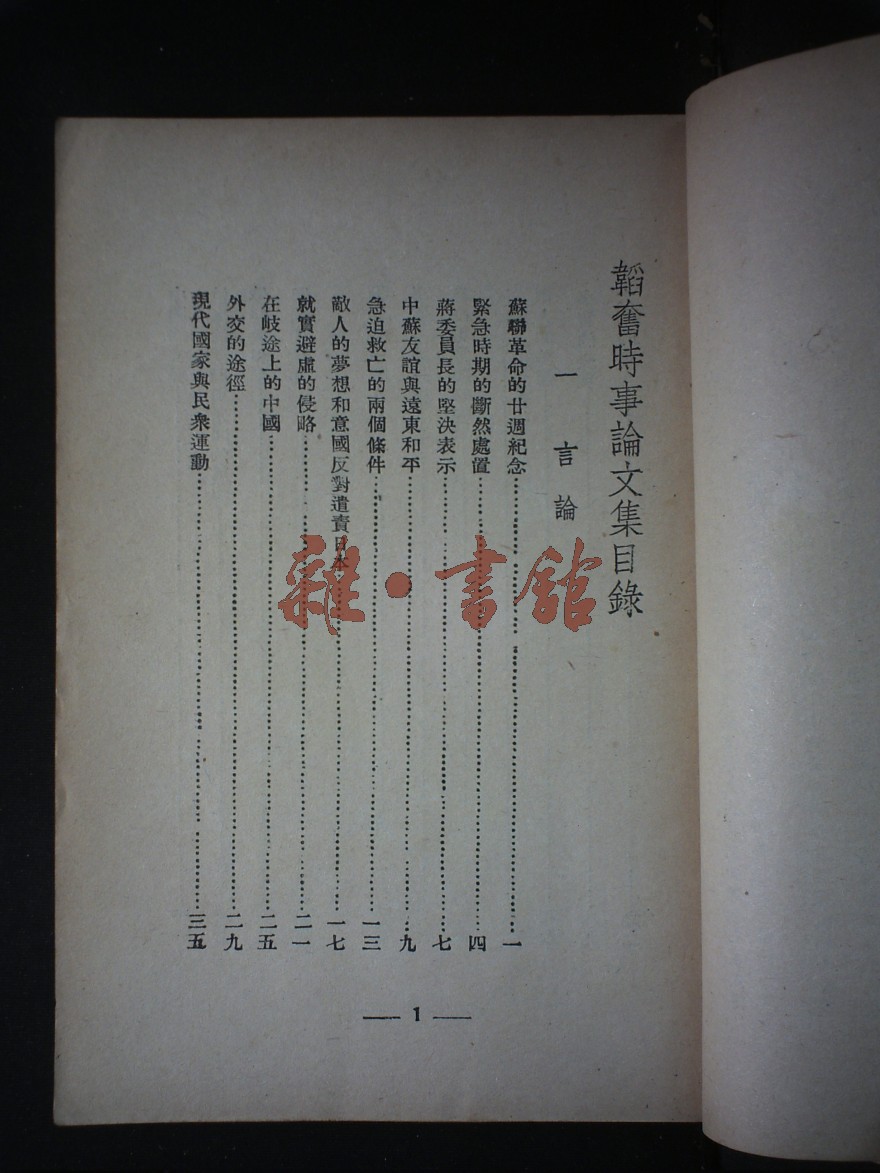 韜奮時事論文集目錄
一 言論
蘇聯革命的廿週紀念……一
緊急時期的斷然處置……四
蔣委員長的堅決表示……七
中蘇友誼與遠東和平……九
急迫救亡的兩個條件……一三
敵人的夢想和意國反對遣責日本……一七
就實避虛的侵略……二一
在岐途上的中國……二五
外交的途徑……二九
現代國家與民衆運動……三五
— 1 —
雜·書館